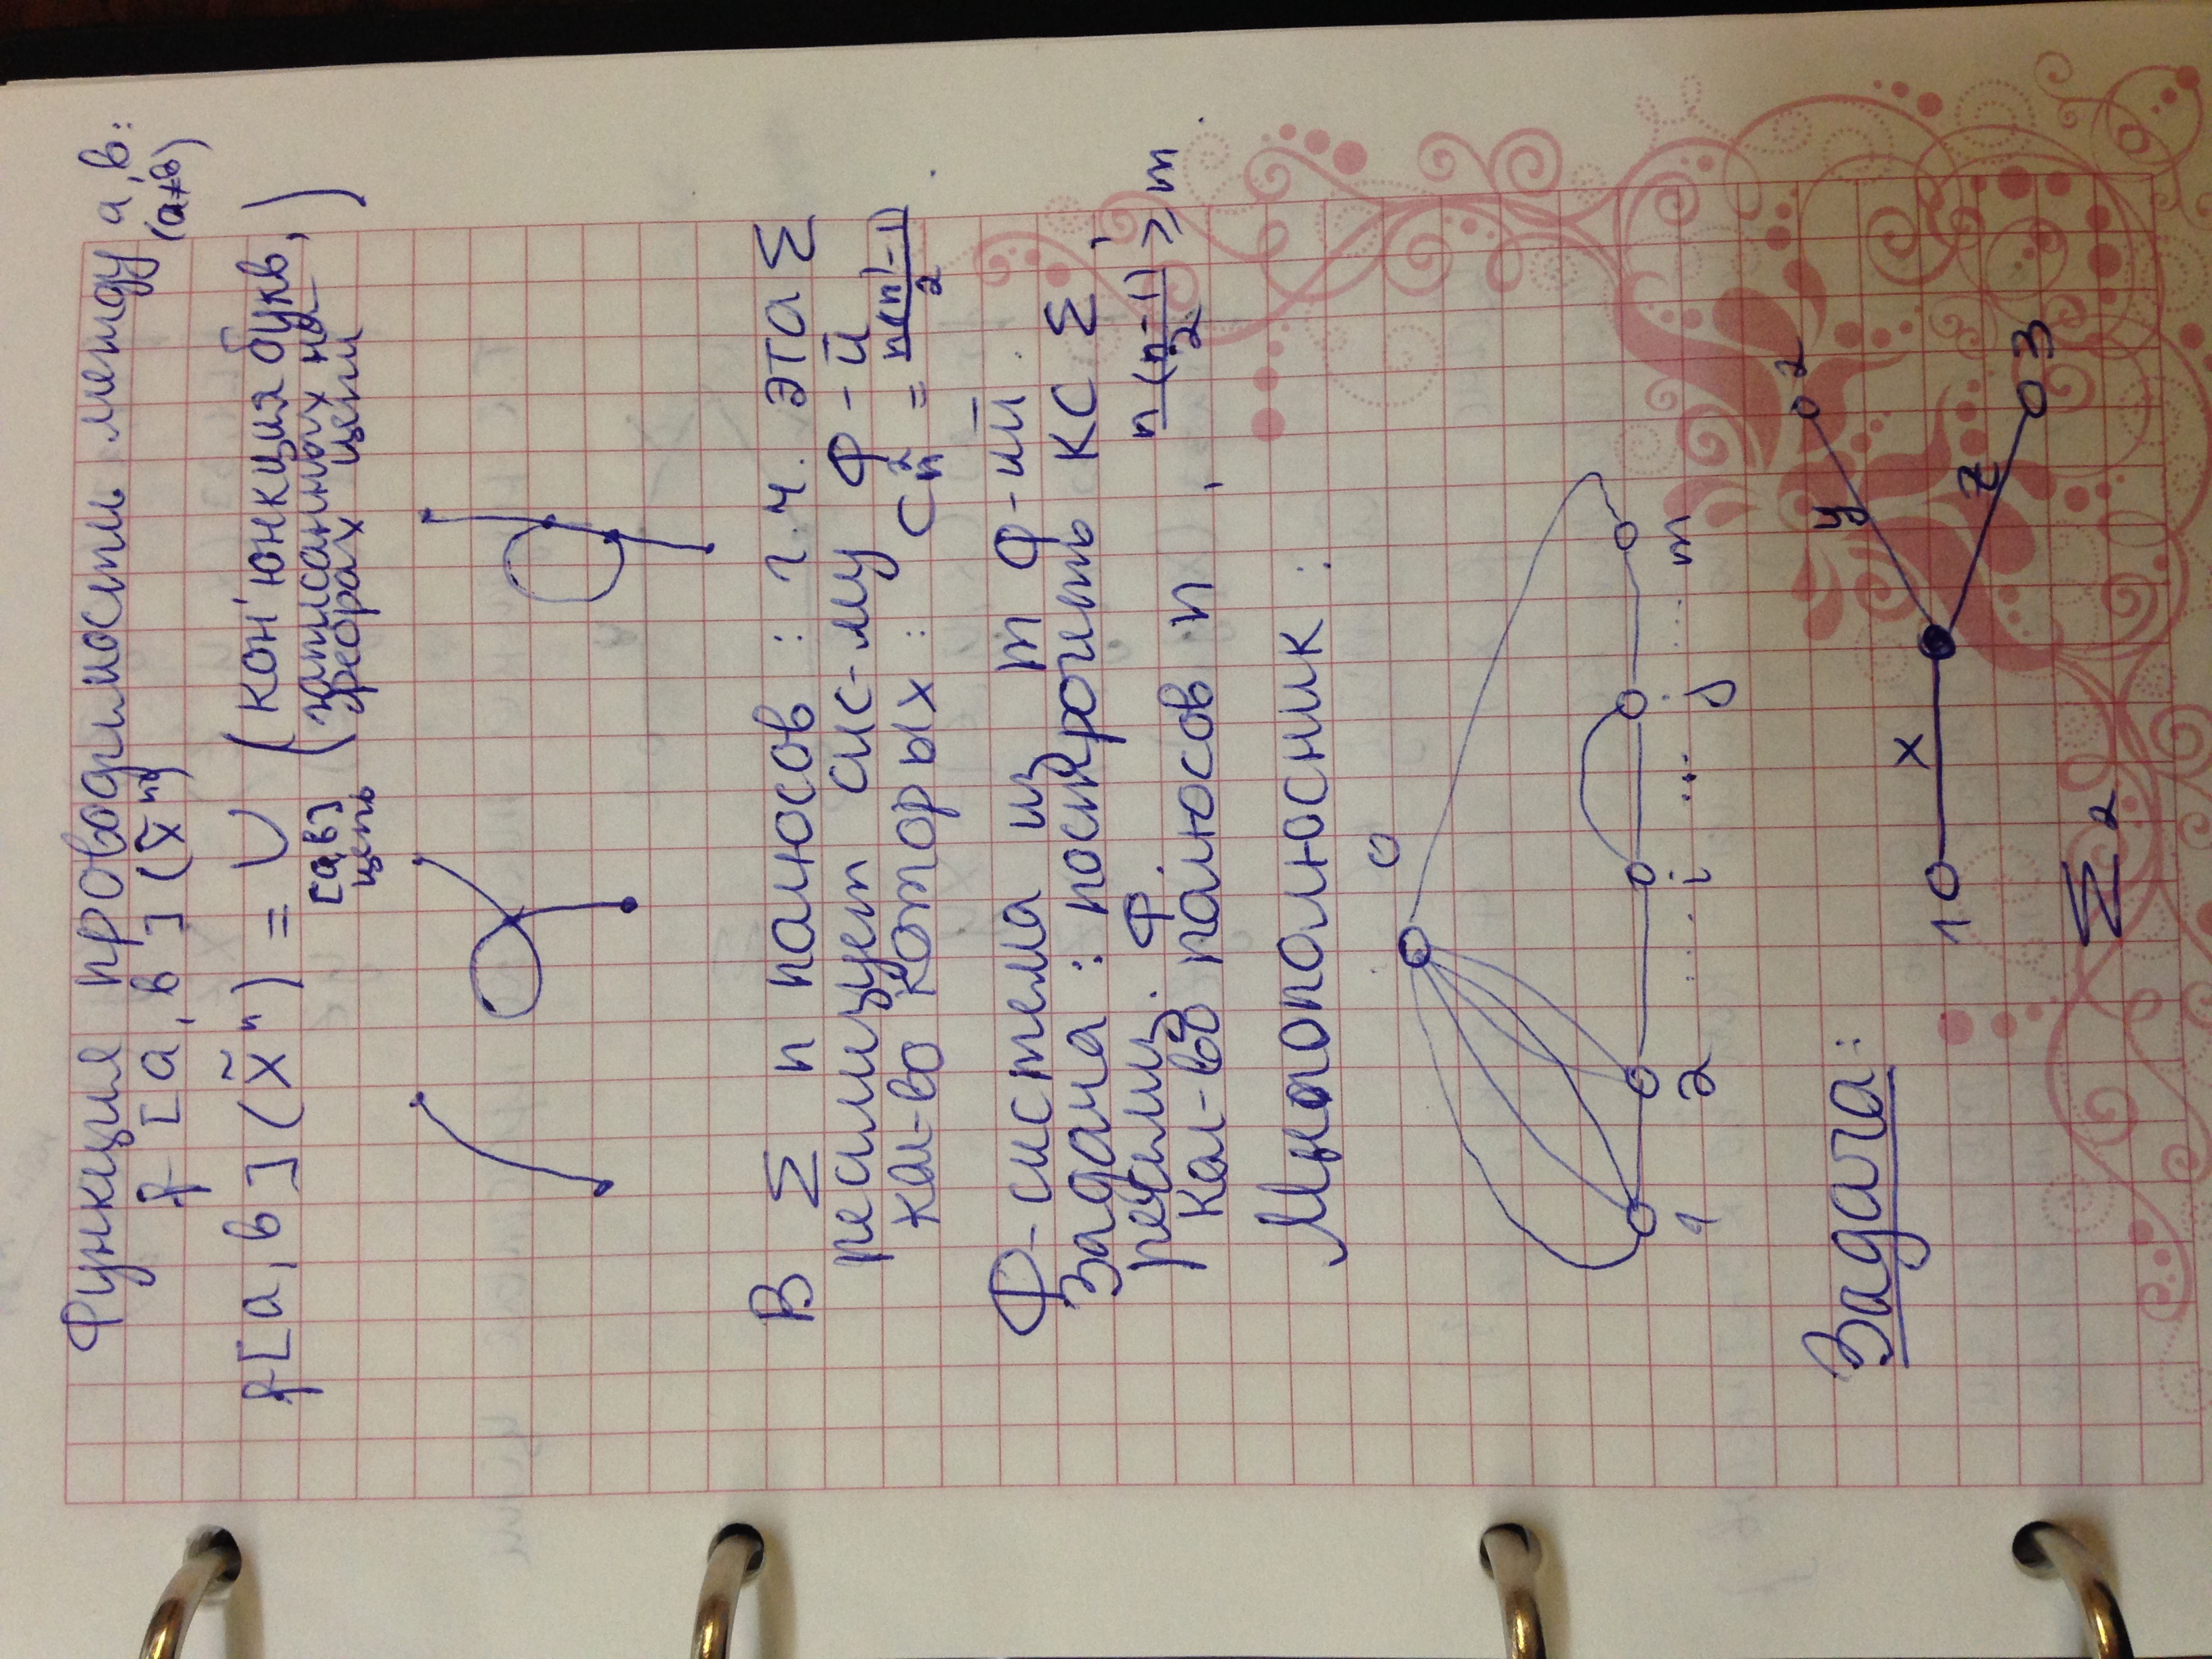 Функция проводимости между a, b:
f [a, b] (x̃ⁿ) (a≠b)
f[a, b] (x̃ⁿ) = ∪ (кон'юнкция букв,
[a,b] (записанных на
цепь ребрах цепи)
В Σ n полюсов : т.ч. эта Σ
реализует сис-му Ф-й
кол-во которых : C²ₙ = n(n-1)/2
Ф-система из m ф-ий.
Задача : построить КС Σ,
реализ. Ф.
Кол-во полюсов n, n(n-1)/2 ≥ m
Многополюсник :
0
1 2 ..... i ... j .... m
Задача:
1 x y 2
z 3
Σ₂